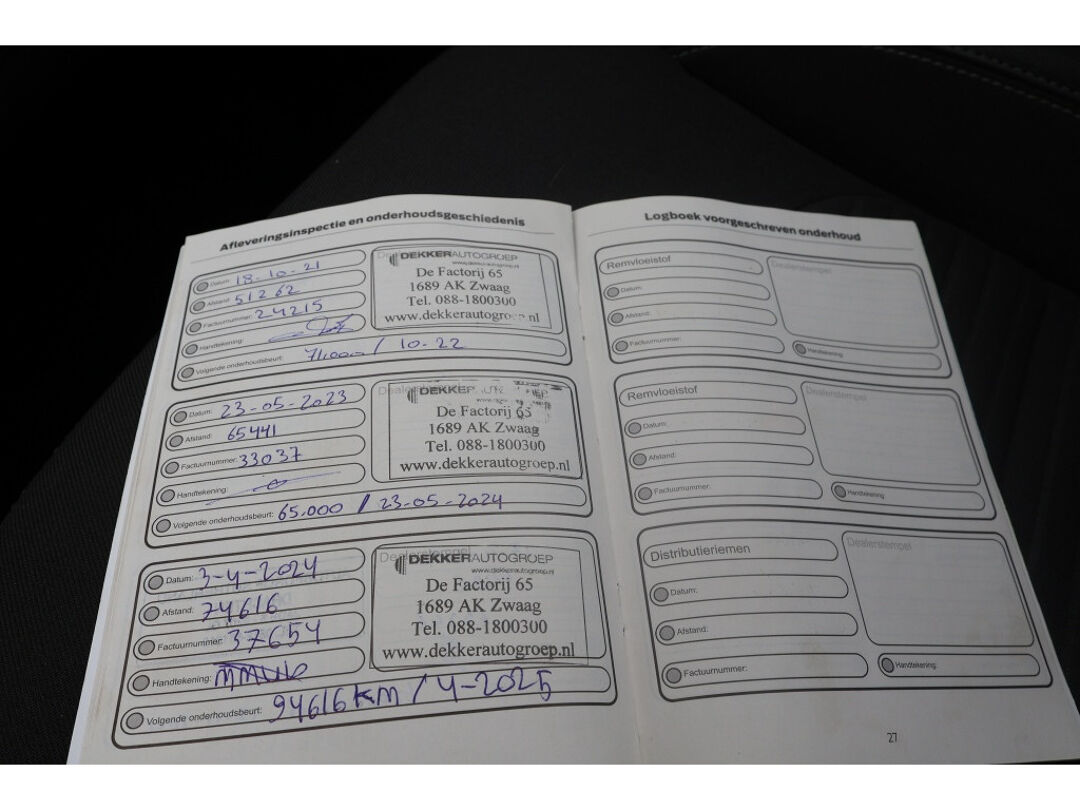 Afleveringsinspectie en onderhoudsgeschiedenis
Datum: 18-10-21
Afstand: 51262
Factuurnummer: 24215
Handtekening:
Volgende onderhoudsbeurt: 71.000 / 10-22
DEKKERAUTOGROEP
www.dekkerautogroep.nl
De Factorij 65
1689 AK Zwaag
Tel. 088-1800300
www.dekkerautogroep.nl
Datum: 23-05-2023
Afstand: 65441
Factuurnummer: 33037
Handtekening:
Volgende onderhoudsbeurt: 65.000 / 23-05-2024
Dealerstempel
DEKKER
De Factorij 65
1689 AK Zwaag
Tel. 088-1800300
www.dekkerautogroep.nl
Datum: 3-4-2024
Afstand: 74616
Factuurnummer: 37654
Handtekening:
Volgende onderhoudsbeurt: 94616 km / 4-2025
Dealerstempel
DEKKERAUTOGROEP
www.dekkerautogroep.nl
De Factorij 65
1689 AK Zwaag
Tel. 088-1800300
www.dekkerautogroep.nl
Logboek voorgeschreven onderhoud
Remvloeistof
Datum:
Afstand:
Factuurnummer:
Dealerstempel
Handtekening
Remvloeistof
Datum:
Afstand:
Factuurnummer:
Dealerstempel
Handtekening
Distributieriemen
Datum:
Afstand:
Factuurnummer:
Dealerstempel
Handtekening:
27